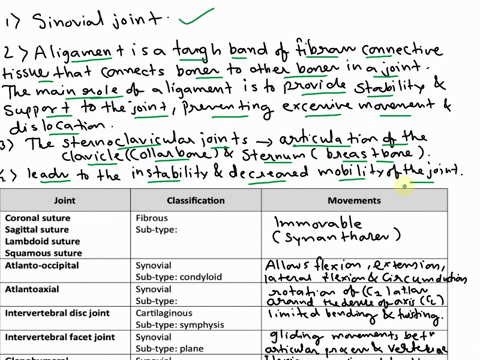 1) Sinovial joint.
2) A ligament is a tough band of fibrow connective
tissue that connects boner to other boner in a joint.
The main role of a ligament is to provide stability &
support to the joint, preventing excenive movement &
dislocation.
3) The sternoclavicular joints → articulation of the
clavicle (collarbone) & sternum (breastbone).
leads to the instability & decreased mobility of the joint.
Joint Classification Movements
Coronal suture Fibrous Immovable
Sagittal suture Sub-type: (Synantharer)
Lambdoid suture
Squamous suture
Atlanto-occipital Synovial Allows flexion, extension,
Sub-type: condyloid lateral flexion & circumduction
Atlantoaxial Synovial rotation of (C1) atlar
Sub-type: around the dense of axis (C2)
Intervertebral disc joint Cartilaginous limited bending & twisting.
Sub-type: symphysis
Intervertebral facet joint Synovial gliding movements betn
Sub-type: plane articular procen & vertebrae